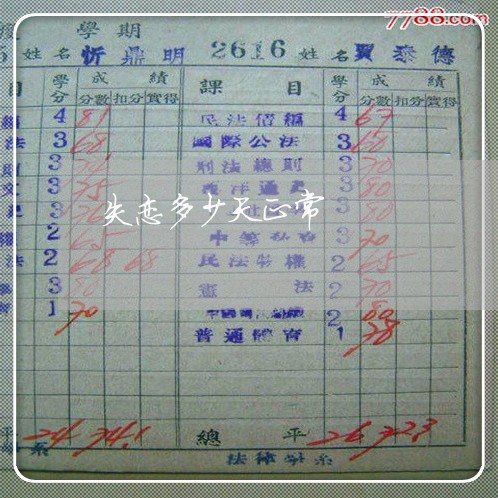 7788.com
學期
姓名 忻鼎明 2616 姓名 賈泰德
目 學分 成績 課目 學分 成績
分數 扣分 實得 分數 扣分 實得
4 81 民法債編 4 67
法 3 68 國際公法 3 60
3 刑法總則 3 70
3 75 西洋通史 3 80
3 3 80
失恋多少天正常
2 65 3 70
法 2 68 68 民法物權 2 65
3 80 憲法 2 70
1 70 2 80
普通體育 1 78
平 24 74.1 總平 26 72.3
系 法律學系